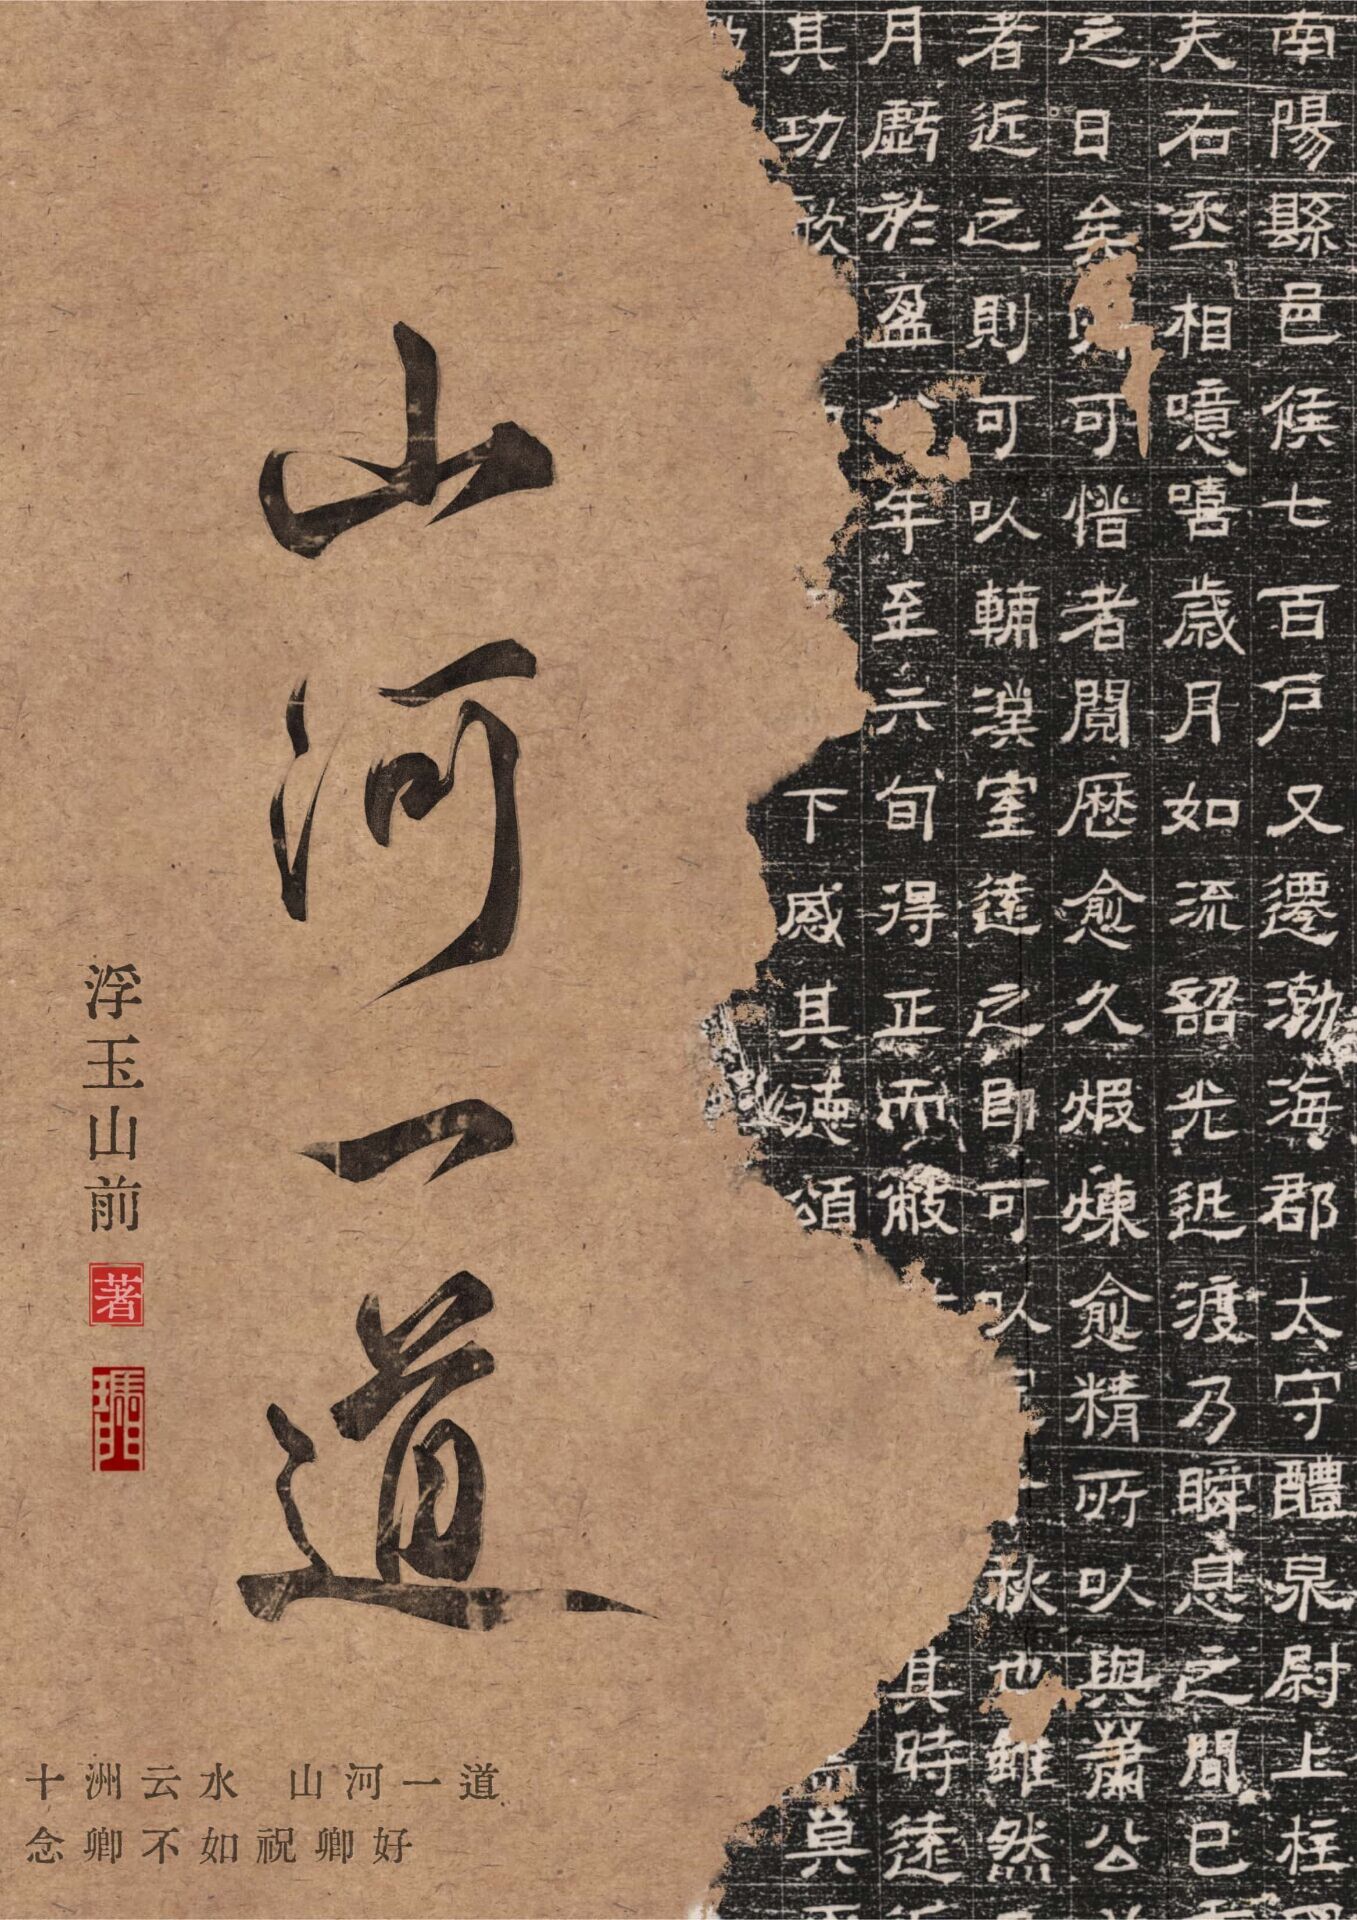 山河一道
浮玉山前
著
十洲云水 山河一道
念卿不如祝卿好
南陽縣邑候七百戸又遷渤海郡太守醴泉尉上柱
夫右丞相噫嘻歳月如流韶光迅渡乃瞬息之間已
之日矣則可可惜者閲歴愈久煆煉愈精所以與蕭公
者近之則可以輔漢室遠之即可以
秋也雖然
月虧於盈
年至六旬得正而敝
其時遠
其功欲
下感其徳頌
莫